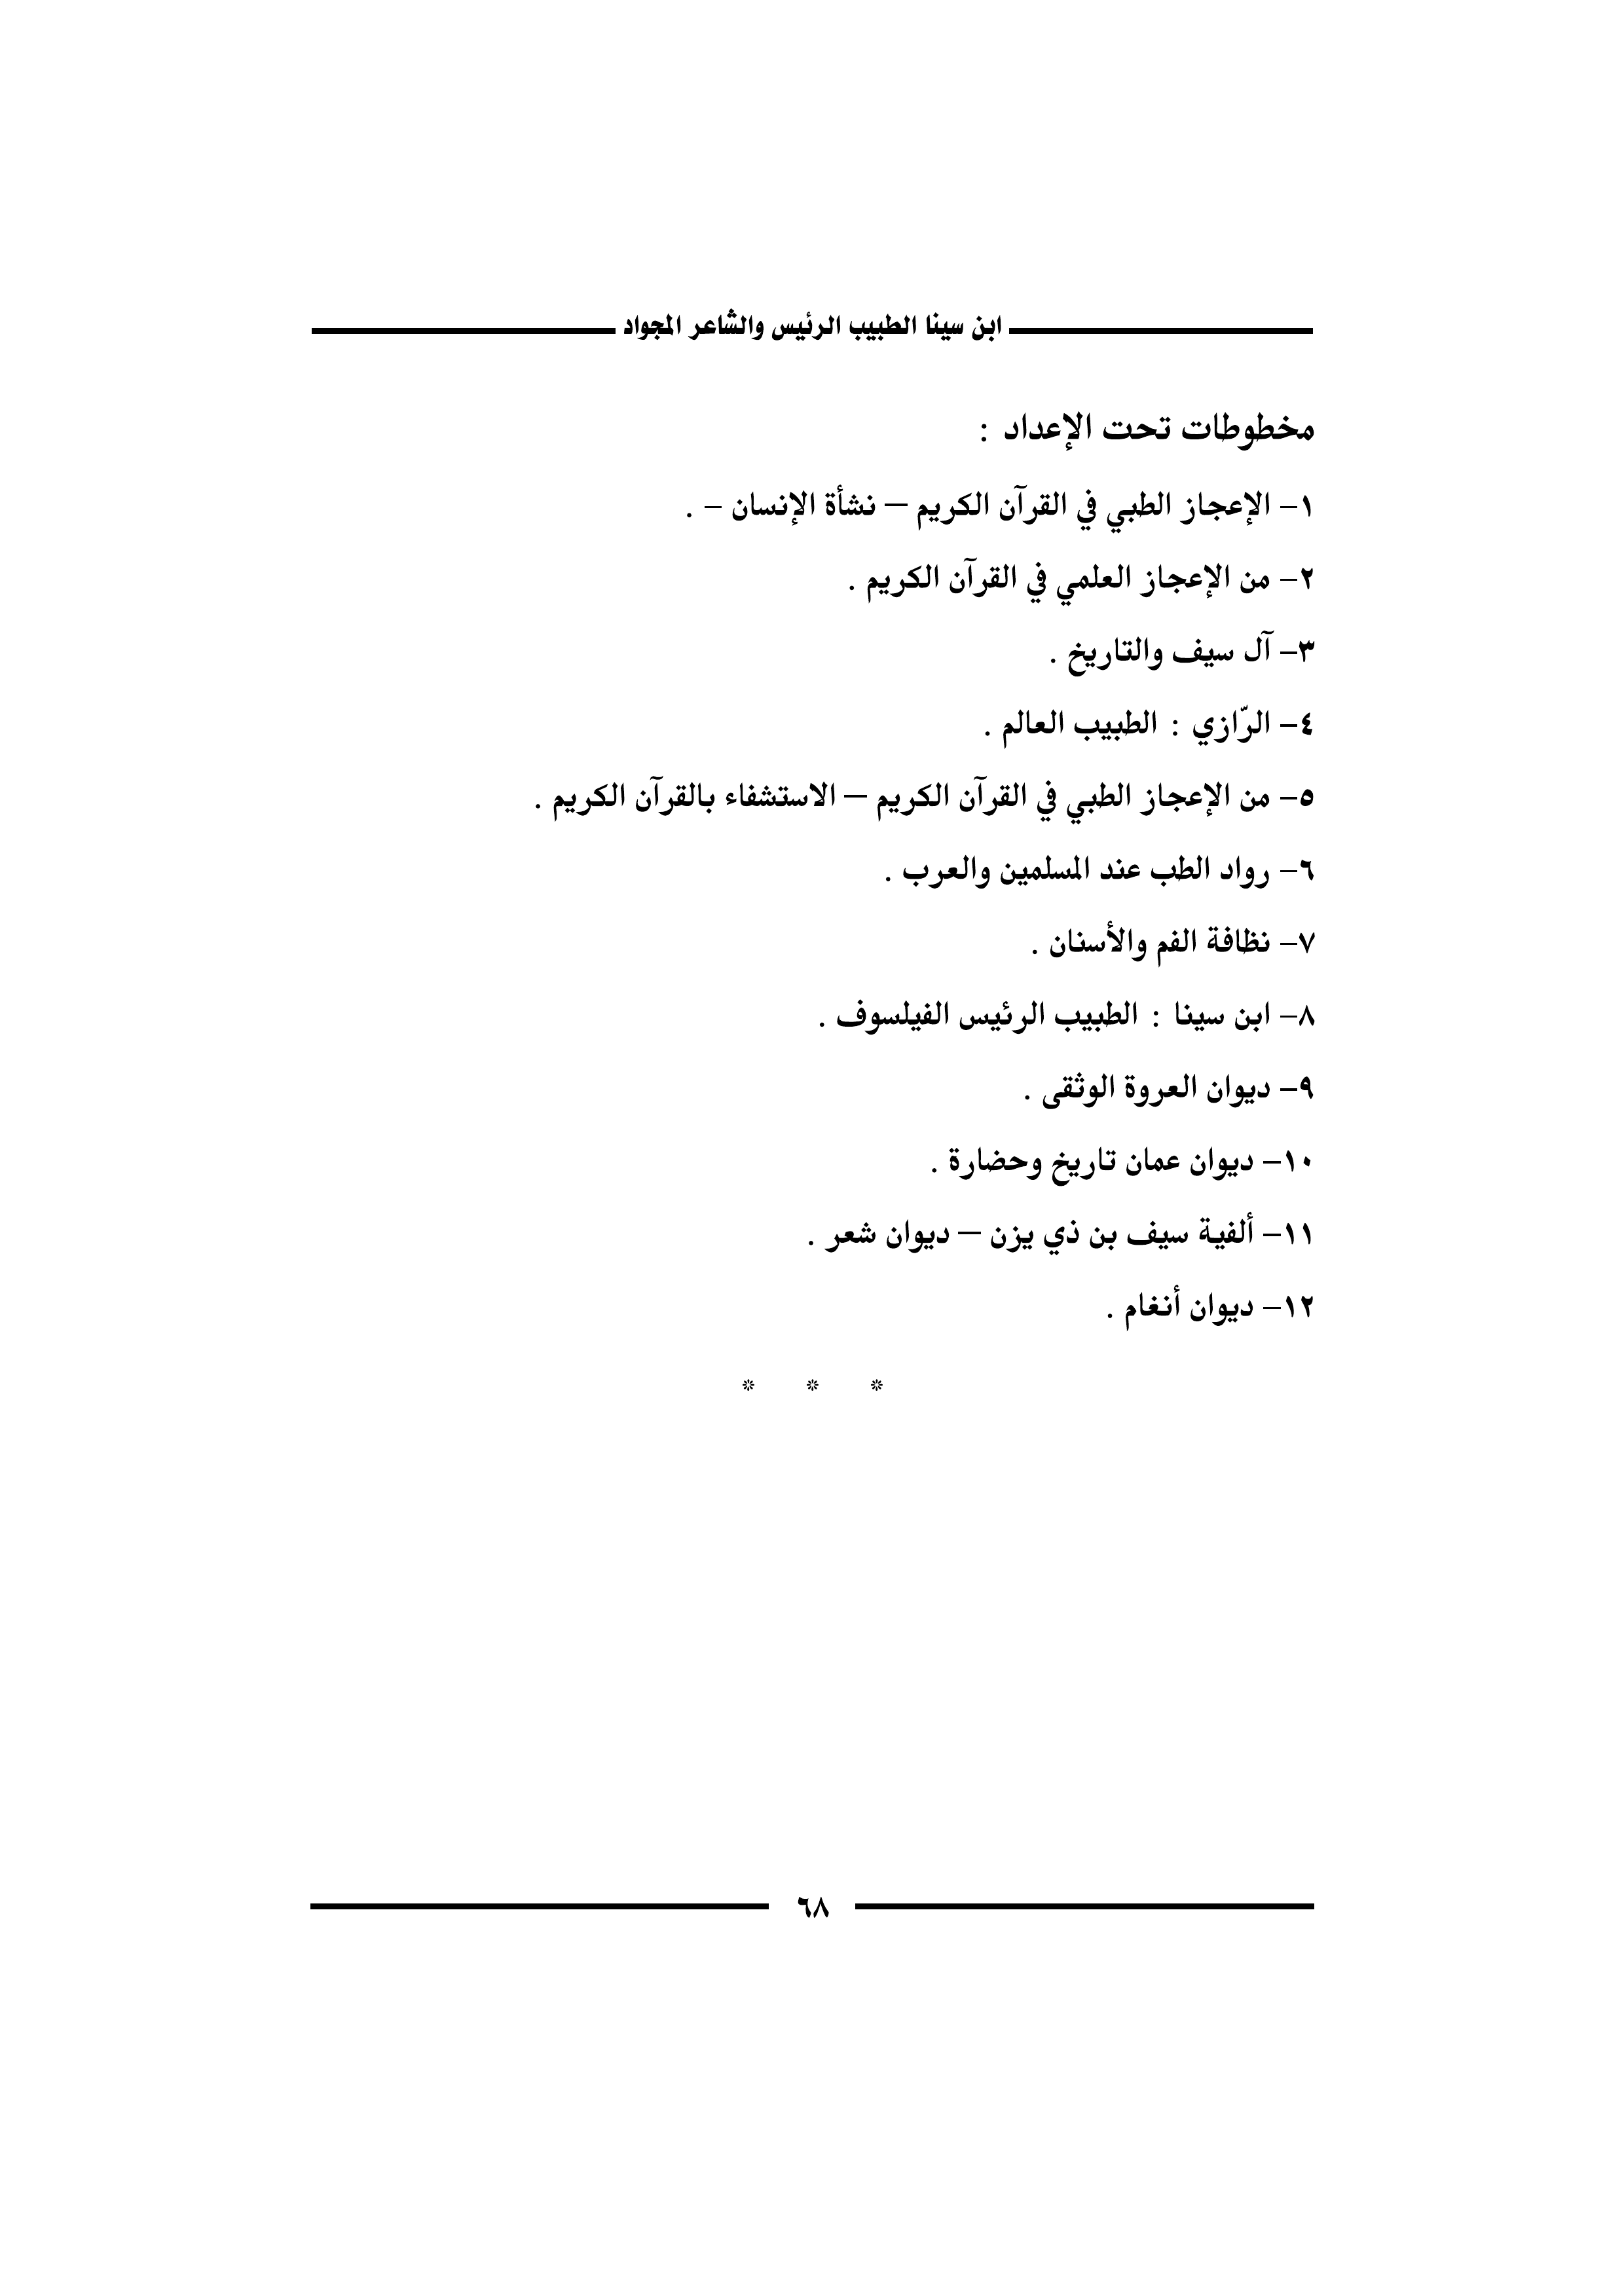 ابن سينا الطبيب الرئيس والشاعر المجواد
مخطوطات تحت الإعداد :
١- الإعجاز الطبي في القرآن الكريم – نشأة الإنسان - .
٢- من الإعجاز العلمي في القرآن الكريم .
٣- آل سيف والتاريخ .
٤- الرّازي : الطبيب العالم .
٥- من الإعجاز الطبي في القرآن الكريم – الاستشفاء بالقرآن الكريم .
٦- رواد الطب عند المسلمين والعرب .
٧- نظافة الفم والأسنان .
٨- ابن سينا : الطبيب الرئيس الفيلسوف .
٩- ديوان العروة الوثقى .
١٠- ديوان عمان تاريخ وحضارة .
١١- ألفية سيف بن ذي يزن – ديوان شعر .
١٢- ديوان أنغام .
* * *
٦٨